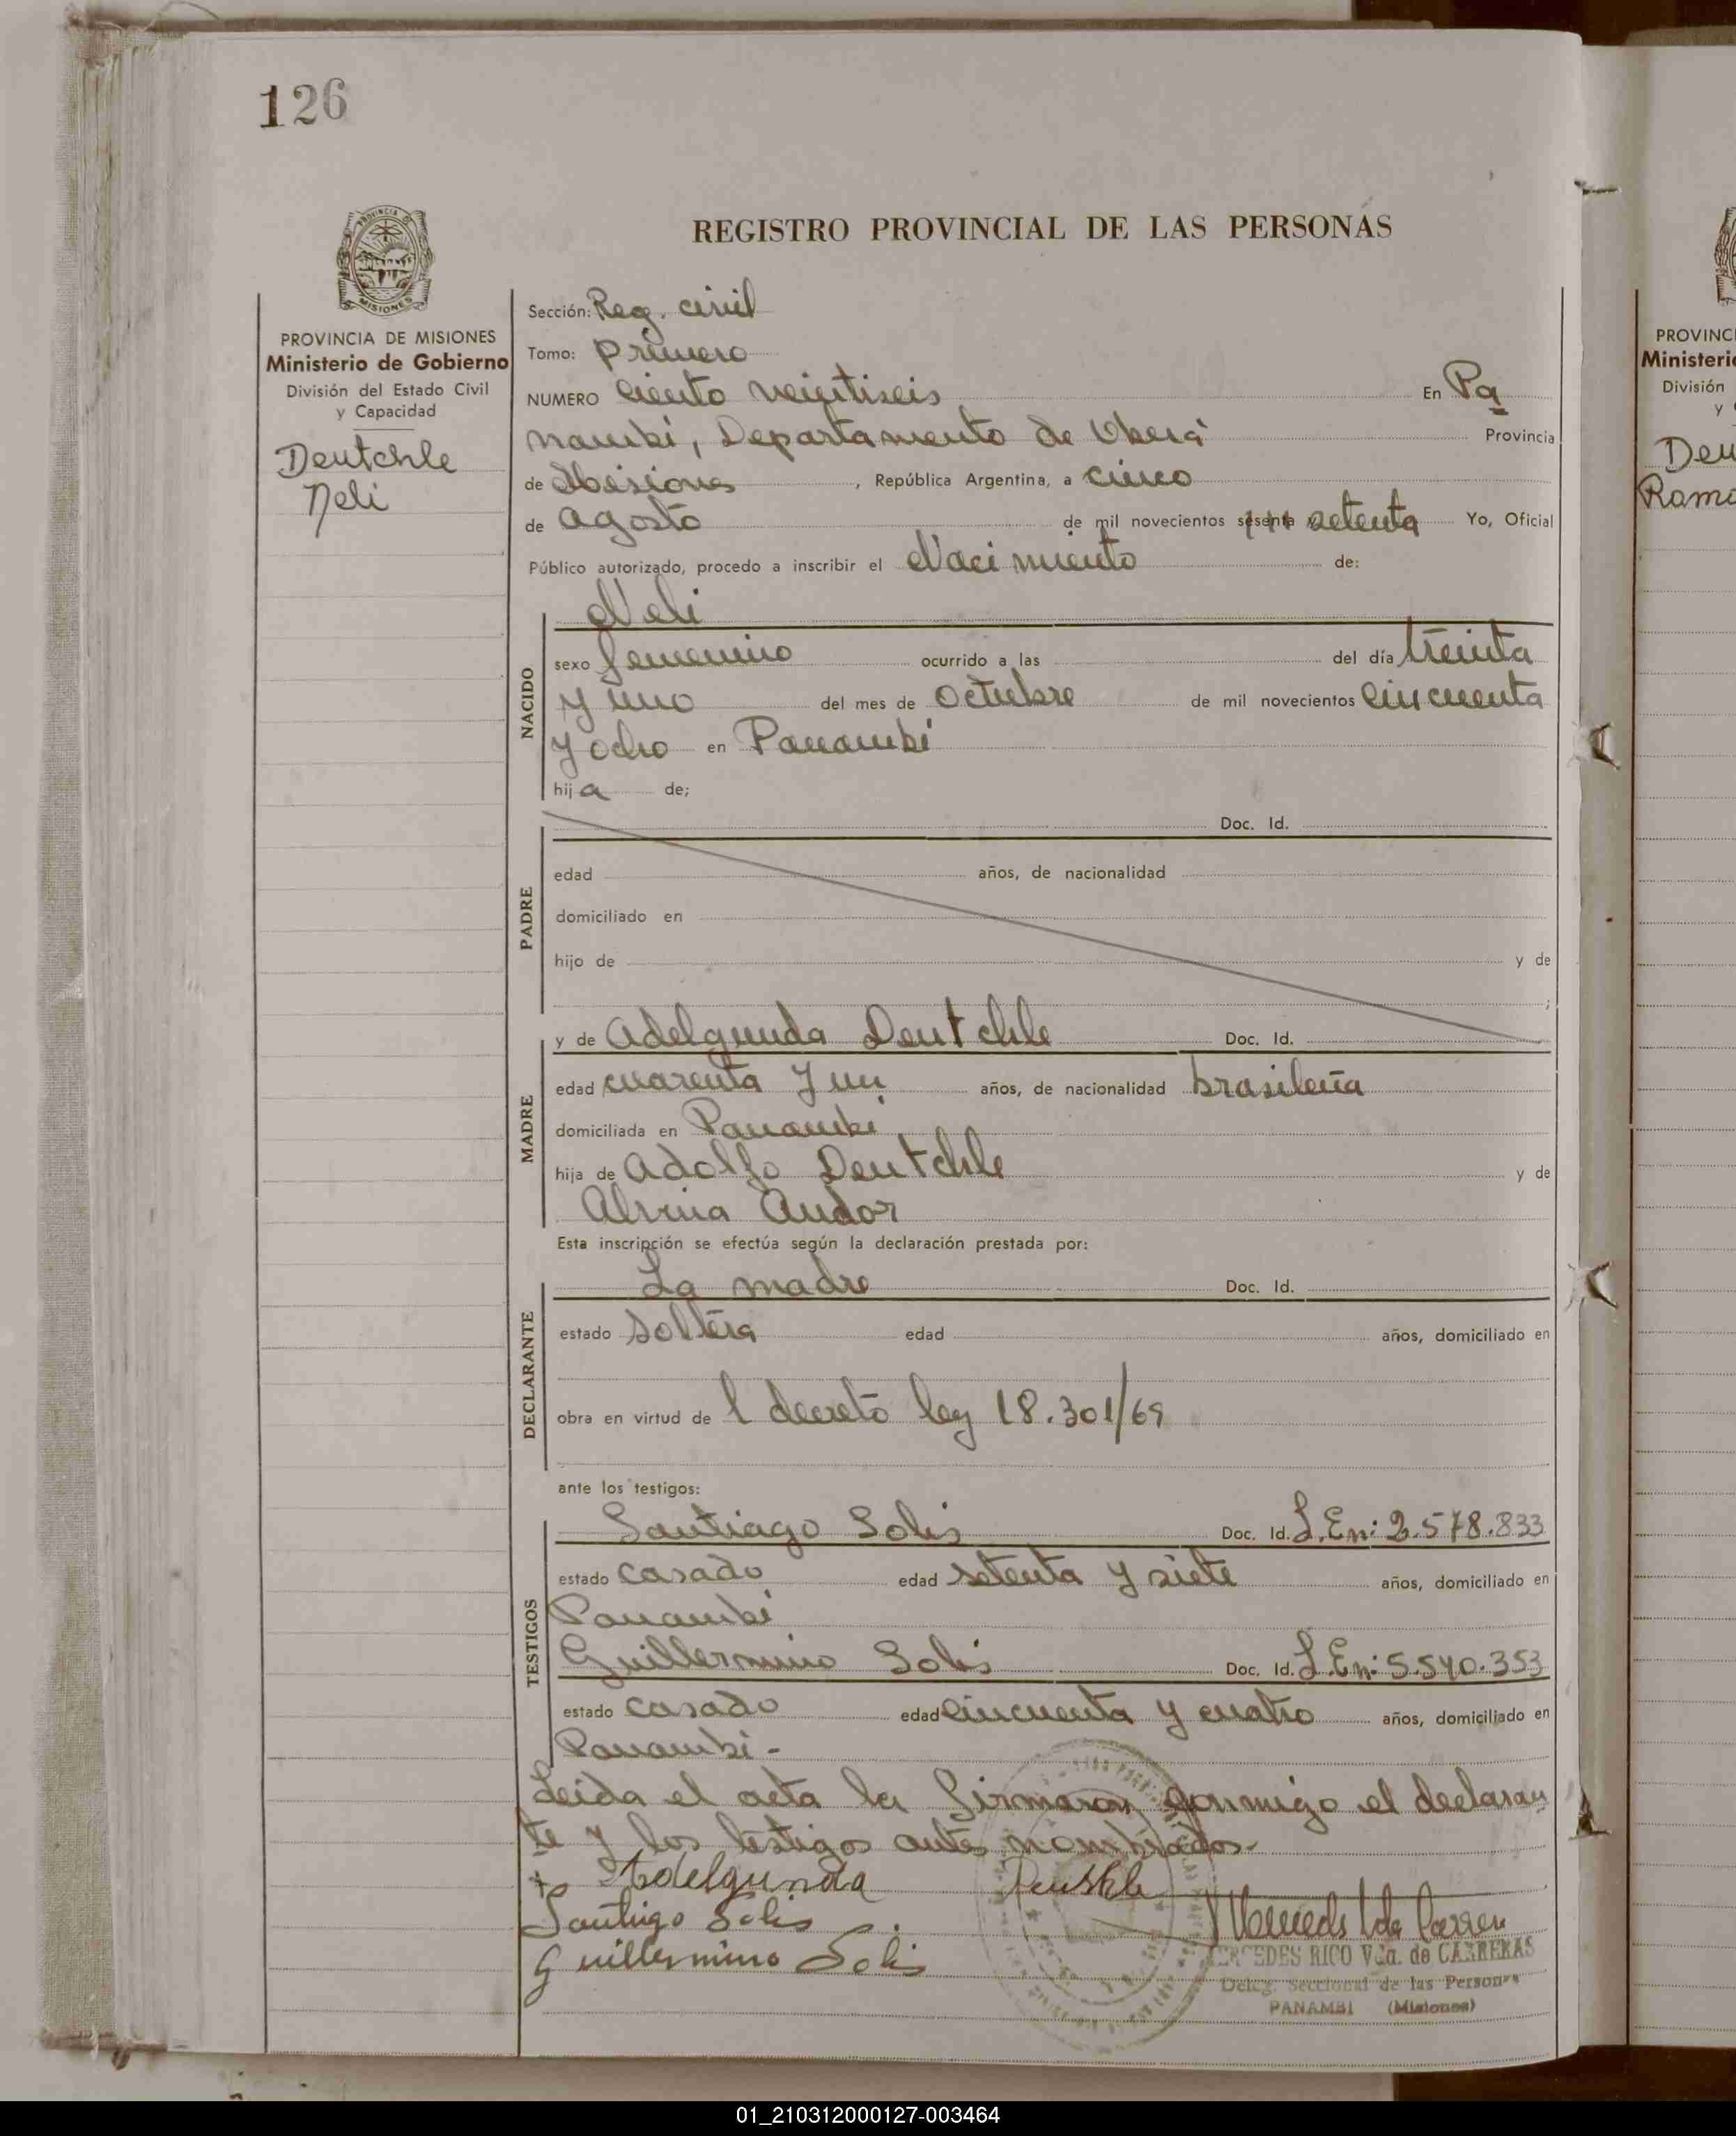 126
REGISTRO PROVINCIAL DE LAS PERSONAS
PROVINCIA DE MISIONES
Ministerio de Gobierno
División del Estado Civil
y Capacidad
Deutchle
Neli
Sección: Reg. civil
Tomo: primero
NUMERO Ciento veintiseis En Pa
nambí, Departamento de Oberá Provincia
de Misiones, República Argentina, a cinco
de agosto de mil novecientos sesenta setenta Yo, Oficial
Público autorizado, procedo a inscribir el Nacimiento de:
NACIDO
Neli
sexo femenino ocurrido a las del día treinta
y uno del mes de Octubre de mil novecientos cincuenta
y ocho en Panambí
hija de;
PADRE
Doc. Id.
edad años, de nacionalidad
domiciliado en
hijo de y de
;
MADRE
y de Adelgunda Deutchle Doc. Id.
edad cuarenta y un años, de nacionalidad brasileña
domiciliada en Panambí
hija de Adolfo Deutchle y de
Alvina Andor
Esta inscripción se efectúa según la declaración prestada por:
DECLARANTE
La madre Doc. Id.
estado soltera edad años, domiciliado en
obra en virtud de l decreto ley 18.301/69
ante los testigos:
TESTIGOS
Santiago Solis Doc. Id. L.En: 2.578.833
estado casado edad setenta y siete años, domiciliado en
Panambí
Guillermino Solis Doc. Id. L.En: 5.540.353
estado casado edad cincuenta y cuatro años, domiciliado en
Panambí -
Leida el acta la firmaron conmigo el declaran
te y los testigos antes nombrados.-
+ Adelgunda
Santiago Solis
Guillermino Solis
MERCEDES RICO Vda. de CARRERAS
Deleg. Seccional de las Personas
PANAMBI (Misiones)
PROVINC
Ministeri
División
y
Deu
Ramo
01_210312000127-003464